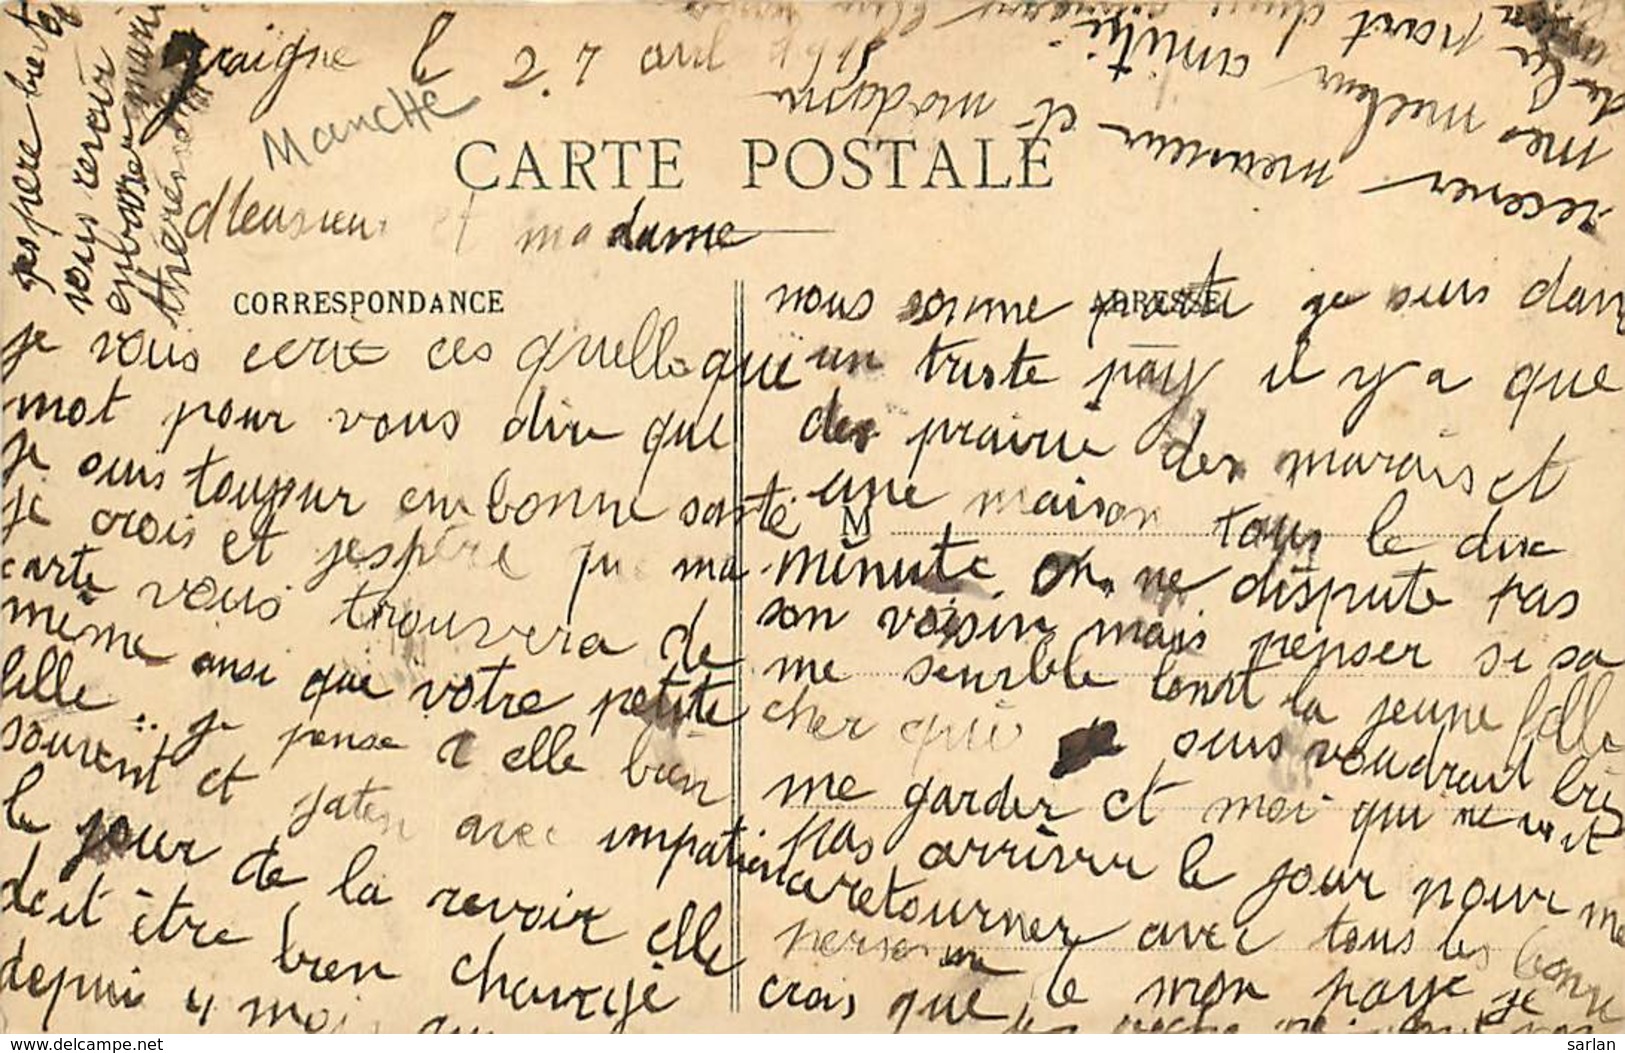 graigne le 27 avril
Manche
CARTE POSTALE
Monsieur et madame
CORRESPONDANCE
je vous ecrit ces quellque
mot pour vous dire que
je suis toujour en bonne santé
je crois et jespère que ma
carte vous trouvera de
même ansi que votre petite
fille .. je pense a elle bien
souvent et jaten avec impatien
le jour de la revoir elle
doit être bien changé
depui 4 moi
ADRESSE
nous somme je suis dan
un triste pay il y a que
des prairie des marais et
une maison tous le dix
M
minute on ne dispute pas
son voisin mais penser si sa
me semble la jeune fille
cher qui suis voudrait
me garder et moi qui ne voit
pas arriver le jour pour me
retourner avec tous les bonne
personne de mon paye je
crois que
recever monsieur et madame
mes meilleur amitié
de la part
jespere
vous revoir
embrasser
therese
sarlan